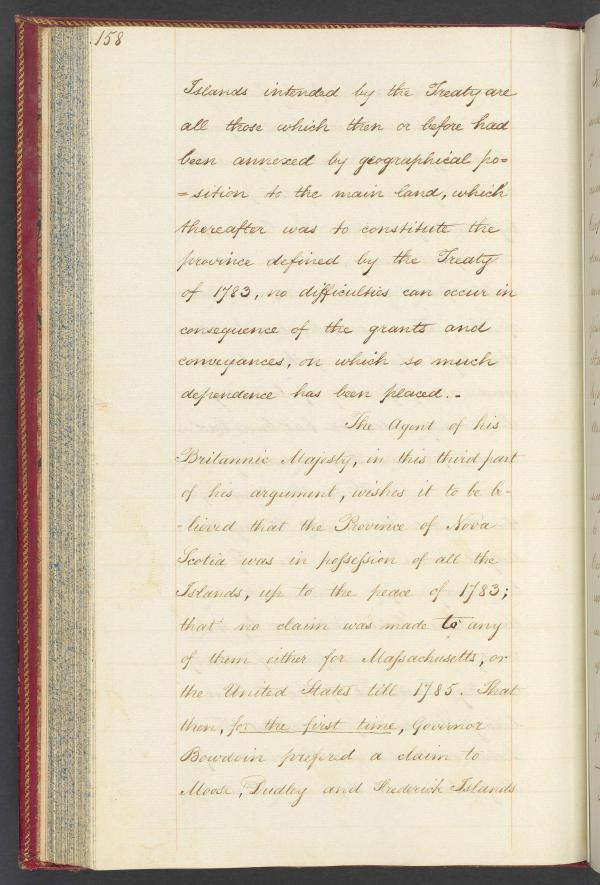 158
Islands intended by the Treaty are
all those which then or before had
been annexed by geographical po=
=sition to the main land, which
thereafter was to constitute the
province defined by the Treaty
of 1783, no difficulties can occur in
consequence of the grants and
conveyances, on which so much
dependence has been placed.-
The Agent of his
Britannic Majesty, in this third part
of his argument, wishes it to be be-
-lieved that the Province of Nova
Scotia was in possession of all the
Islands, up to the peace of 1783;
that no claim was made to any
of them either for Massachusetts, or
the United States till 1785. That
then, for the first time, Governor
Bowdoin prefered a claim to
Moose, Dudley and Frederick Islands